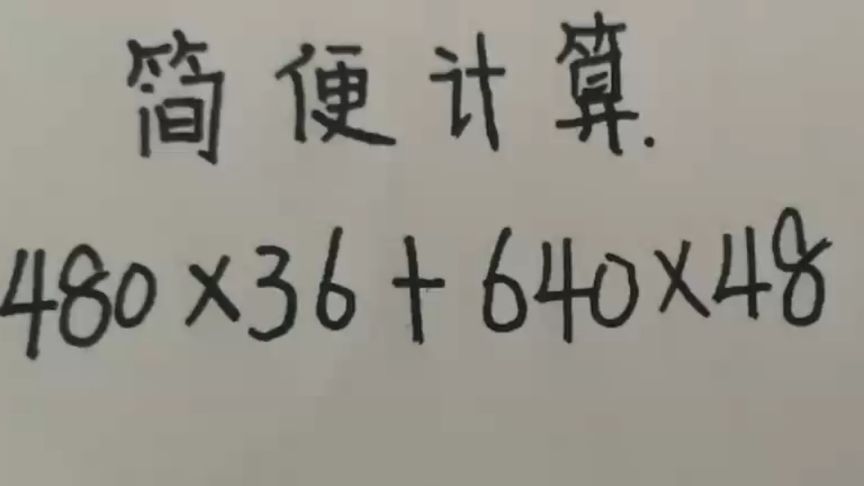 简便计算.
480×36+640×48